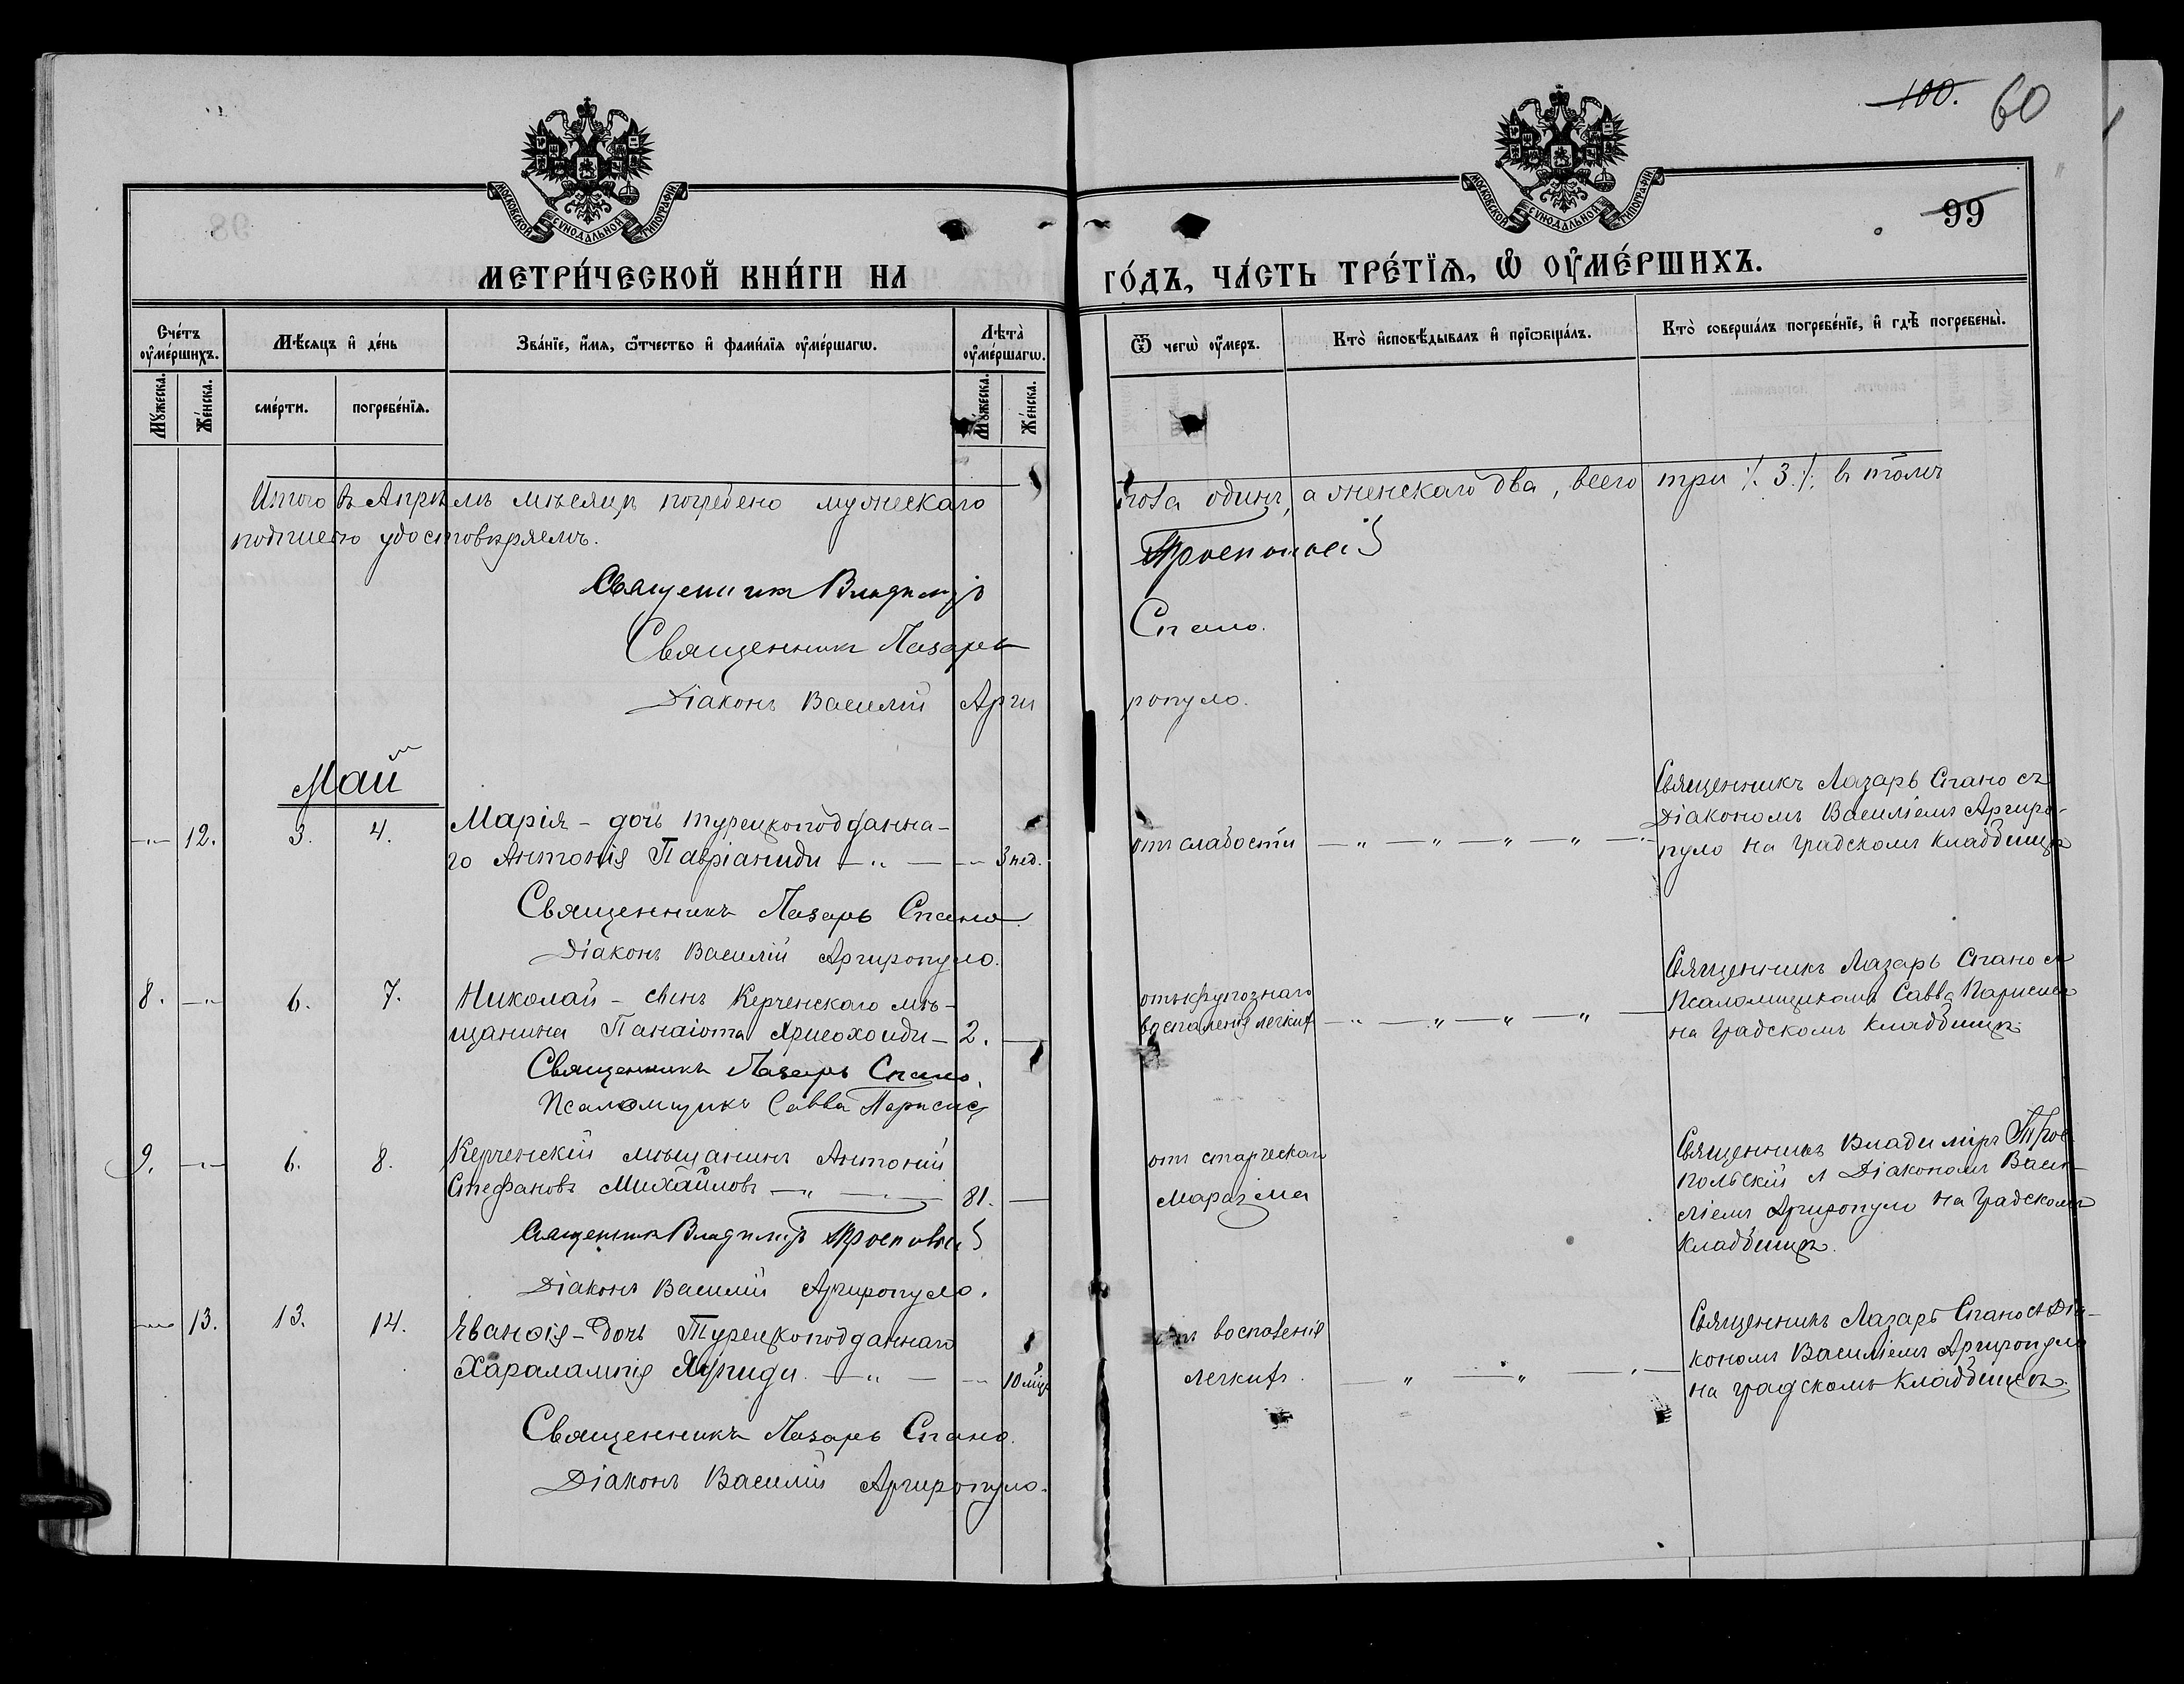 100. 60
99
МОСКОВСКОЙ СѴНОДАЛЬНОЙ ТИПОГРАФІИ
МОСКОВСКОЙ СѴНОДАЛЬНОЙ ТИПОГРАФІИ
МЕТРИ́ЧЕСКОЙ КНИ́ГИ НА ГО́ДЪ, ЧА́СТЬ ТРЕ́ТЇѦ, Ѡ҆ ОУ҆МЕ́РШИХЪ.
Сче́тъ оу҆ме́ршихъ.
Мꙋ́жеска.
Же́нска.
Мѣ́сяцъ и҆ де́нь
сме́рти.
погребе́нїѧ.
Зва́нїе, и҆́мѧ, ѻ҆́тчество и҆ фами́лїѧ оу҆ме́ршагѡ.
Лѣ́та оу҆ме́ршагѡ.
Мꙋ́жеска.
Же́нска.
Ѿ чегѡ̀ оу҆́меръ.
Кто̀ и҆сповѣ́дывалъ и҆ прїѡбща́лъ.
Кто̀ соверша́лъ погребе́нїе, и҆ гдѣ̀ погребены̀.
Итого въ Апрѣлѣ мѣсяцѣ погребено мужескаго пола одинъ, а женскаго два, всего три ./. 3 ./. въ томъ
подписью удостовѣряемъ.
Священникъ Владиміръ Троепольскій
Священникъ Лазарь Спано.
Діаконъ Василій Аргиропуло.
Май
12. 3. 4. Марія - дочь турецкоподданна-
го Антонія Павріаниди 3 нед.
отъ слабости
Священникъ Лазарь Спано съ
Діакономъ Василіемъ Аргиро-
пуло на градскомъ кладбищѣ
Священникъ Лазарь Спано
Діаконъ Василій Аргиропуло.
8. 6. 7. Николай - сынъ Керченскаго мѣ-
щанина Панаіота Хрисохоиди - 2.
отъ крупознаго
воспаленія легкихъ
Священникъ Лазарь Спано съ
Псаломщикомъ Савва Парисисъ
на градскомъ кладбищѣ
Священникъ Лазарь Спано.
Псаломщикъ Савва Парисисъ
9. 6. 8. Керченскій мѣщанинъ Антоній
Стефановъ Михайловъ 81.
отъ старческаго
маразма
Священникъ Владиміръ Трое-
польскій съ Діакономъ Васи-
ліемъ Аргиропуло на градскомъ
кладбищѣ.
Священникъ Владиміръ Троепольскій
Діаконъ Василій Аргиропуло.
13. 13. 14. Еванѳія - дочь Турецкоподданнаго
Харалампія 10 мѣс.
отъ воспаленія
легкихъ.
Священникъ Лазарь Спано съ Діа-
кономъ Василіемъ Аргиропуло
на градскомъ кладбищѣ.
Священникъ Лазарь Спано.
Діаконъ Василій Аргиропуло.